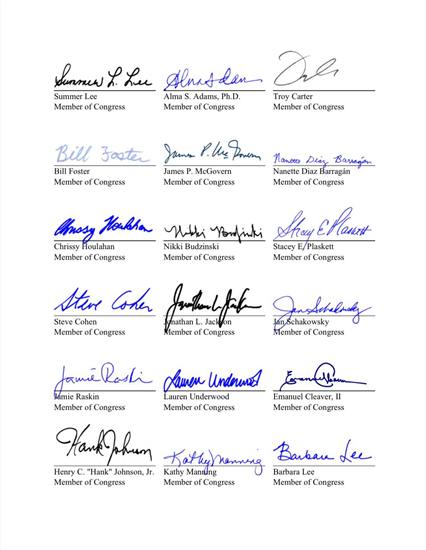 Summer L. Lee Alma S Adams
Summer Lee Alma S. Adams, Ph.D. Troy Carter
Member of Congress Member of Congress Member of Congress
Bill Foster James P. McGovern Nanette Diaz Barragán
Bill Foster James P. McGovern Nanette Diaz Barragán
Member of Congress Member of Congress Member of Congress
Chrissy Houlahan Nikki Budzinski Stacey E. Plaskett
Chrissy Houlahan Nikki Budzinski Stacey E. Plaskett
Member of Congress Member of Congress Member of Congress
Steve Cohen Jonathan L. Jackson Jan Schakowsky
Steve Cohen Jonathan L. Jackson Jan Schakowsky
Member of Congress Member of Congress Member of Congress
Jamie Raskin Lauren Underwood Emanuel Cleaver
Jamie Raskin Lauren Underwood Emanuel Cleaver, II
Member of Congress Member of Congress Member of Congress
Hank Johnson Kathy Manning Barbara Lee
Henry C. "Hank" Johnson, Jr. Kathy Manning Barbara Lee
Member of Congress Member of Congress Member of Congress